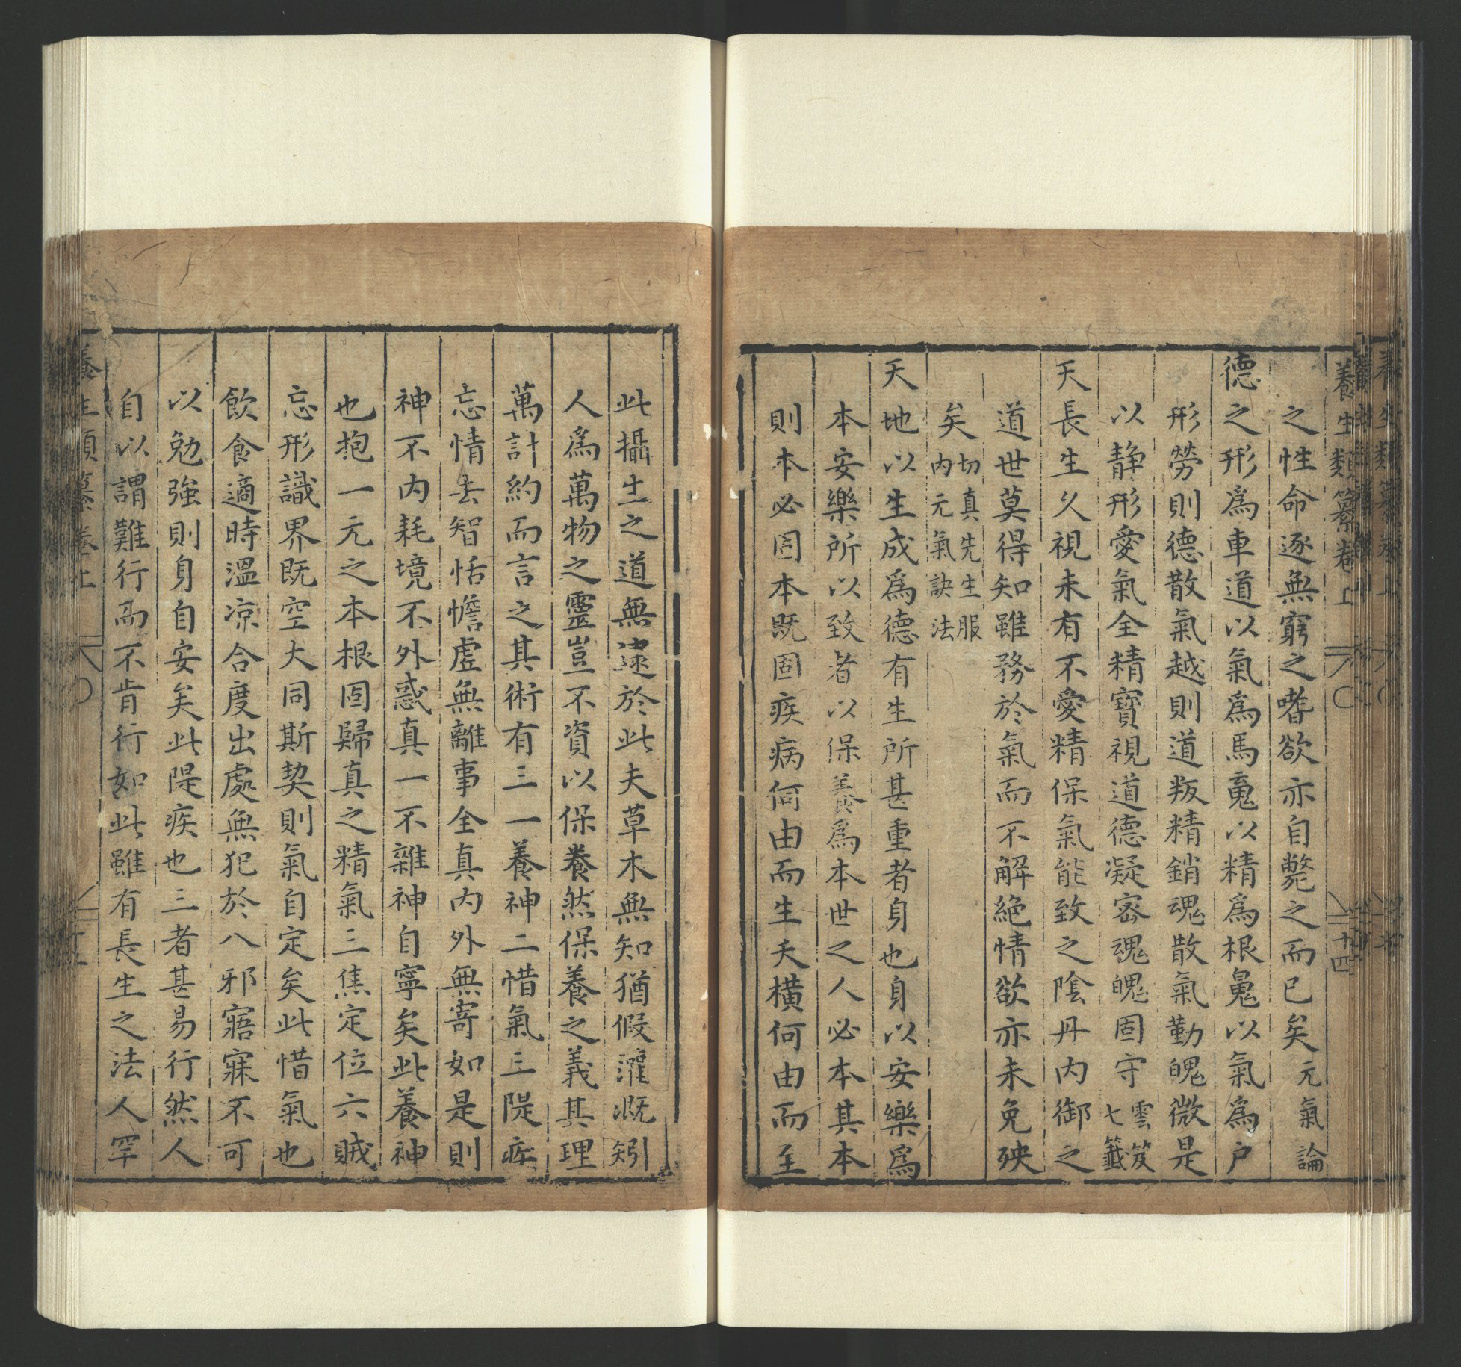 養生類纂卷上
十四
之性命逐無窮之嗜欲亦自斃之而已矣元氣論
德之形爲車道以氣爲馬䰟以精爲根魄以氣爲户
形勞則德散氣越則道叛精銷魂散氣勤魄微是
以静形愛氣全精寳視道德凝宻魂魄固守雲笈七籖
天長生久視未有不愛精保氣能致之陰丹内御之
道世莫得知雖務於氣而不解絶情欲亦未免殃
矣切真先生服内元氣訣法
天地以生成爲德有生所甚重者身也身以安樂爲
本安樂所以致者以保養爲本世之人必本其本
則本必固本既固疾病何由而生夭横何由而至
此攝生之道無逮於此夫草木無知猶假灌溉矧
人爲萬物之靈豈不資以保養然保養之義其理
萬計約而言之其術有三一養神二惜氣三隄疾
忘情去智恬憺虚無離事全真内外無寄如是則
神不内耗境不外惑真一不雜神自寧矣此養神
也抱一元之本根固歸真之精氣三焦定位六賊
忘形識界既空大同斯契則氣自定矣此惜氣也
飲食適時溫凉合度出處無犯於八邪寤寐不可
以勉強則身自安矣此隄疾也三者甚易行然人
自以謂難行而不肯行如此雖有長生之法人罕
養生類纂卷上